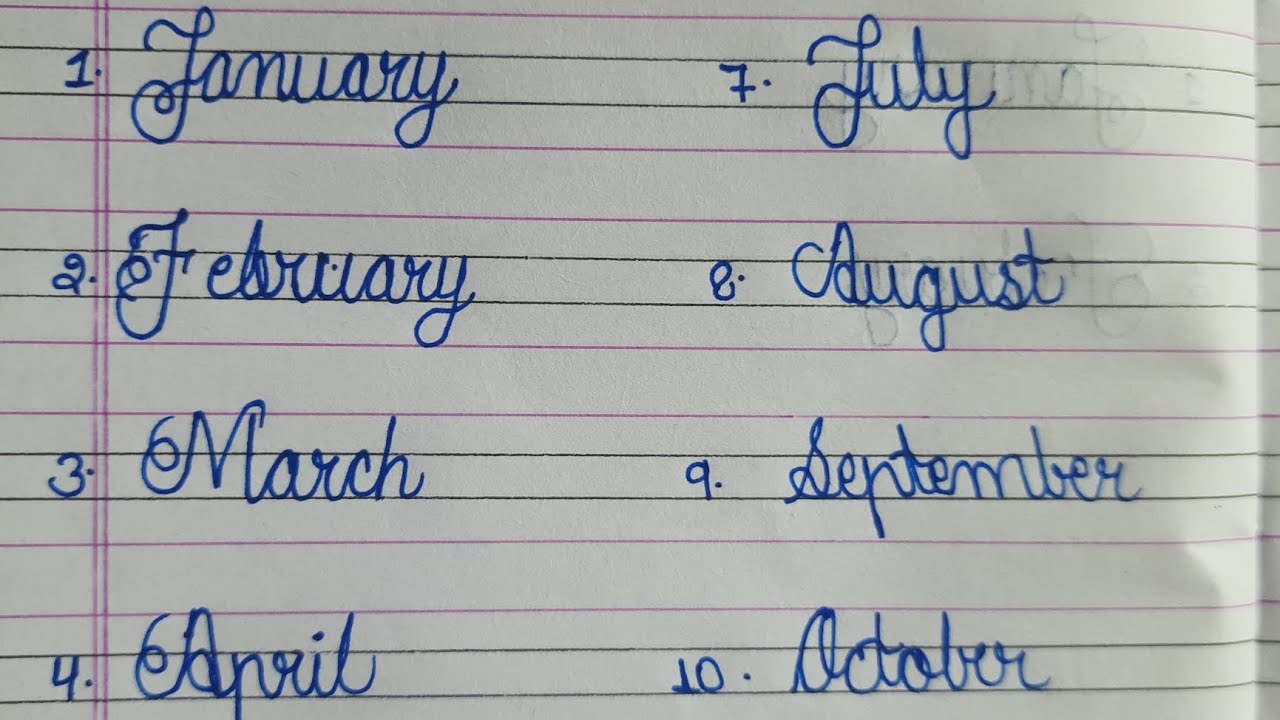 1. January
2. February
3. March
4. April
7. July
8. August
9. September
10. October